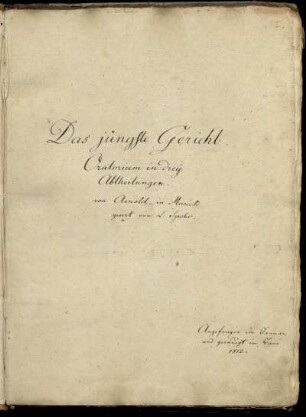 Das jüngste Gericht.
Oratorium in drey
Abtheilungen.
von Arnold, in Musick
gesezt von L. Spohr.
Angefangen im Januar
und geendigt im Juni
1812.